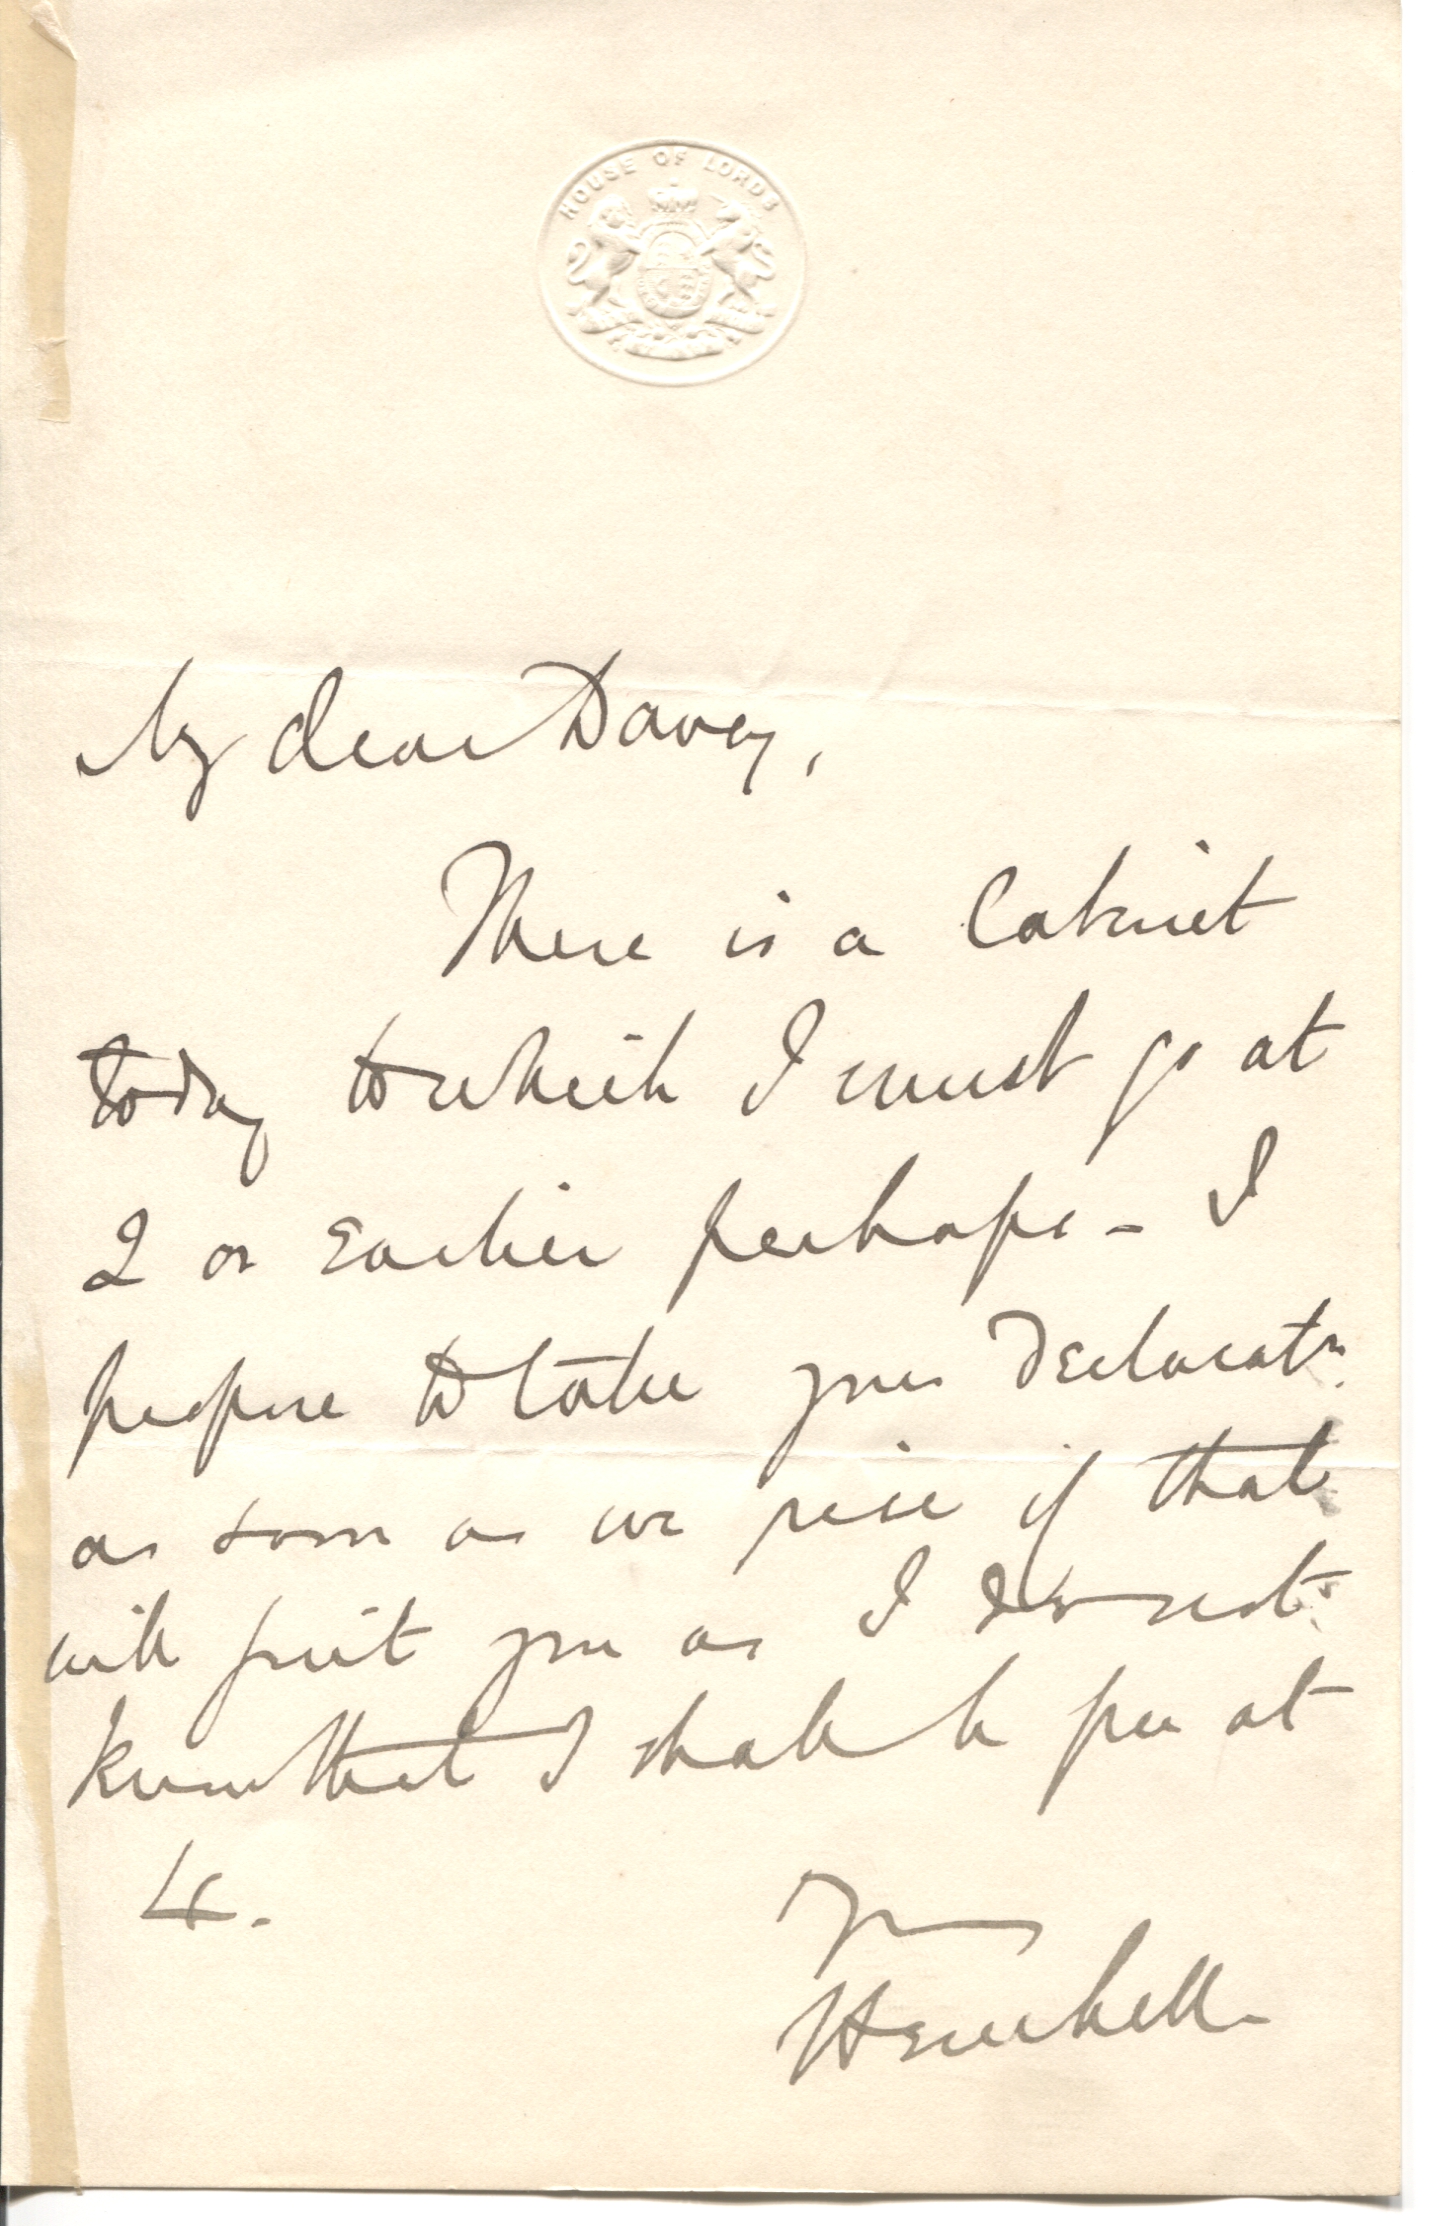 HOUSE OF LORDS
My dear Davey,
There is a Cabinet
today to which I must go at
2 or earlier perhaps - I
propose to take your declaratn.
as soon as we rise if that
will suit you as I do not
know that I shall be free at
4.
Yrs
Herschell